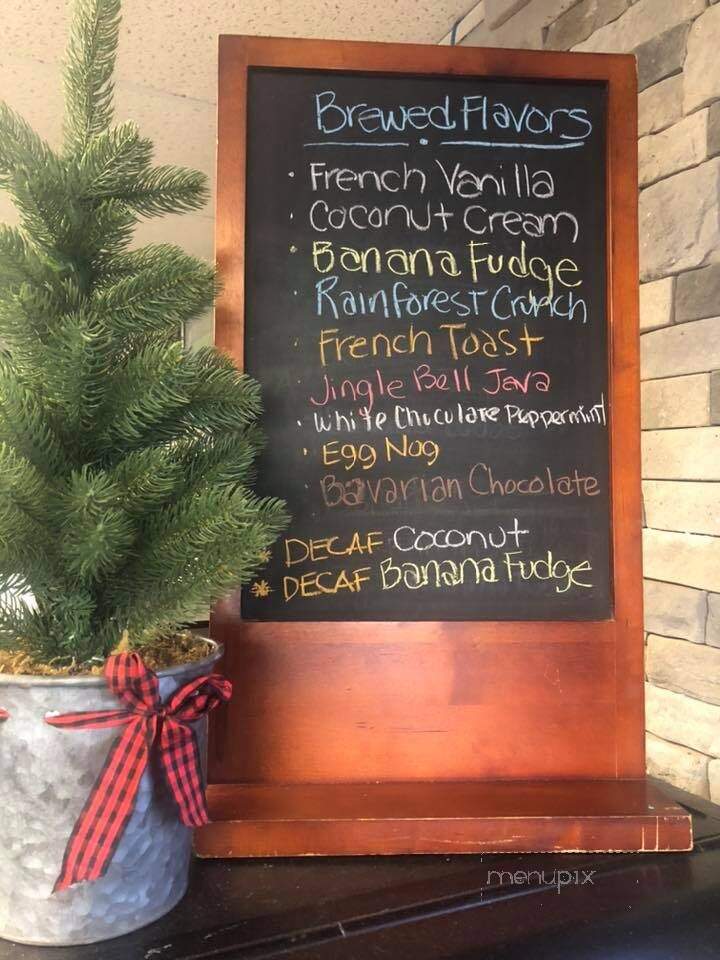 Brewed Flavors
• French Vanilla
• Coconut Cream
• Banana Fudge
• Rainforest Crunch
• French Toast
• Jingle Bell Java
• White Chuculate Peppermint
• Egg Nog
• Bavarian Chocolate
* DECAF Coconut
* DECAF Banana Fudge
menupix